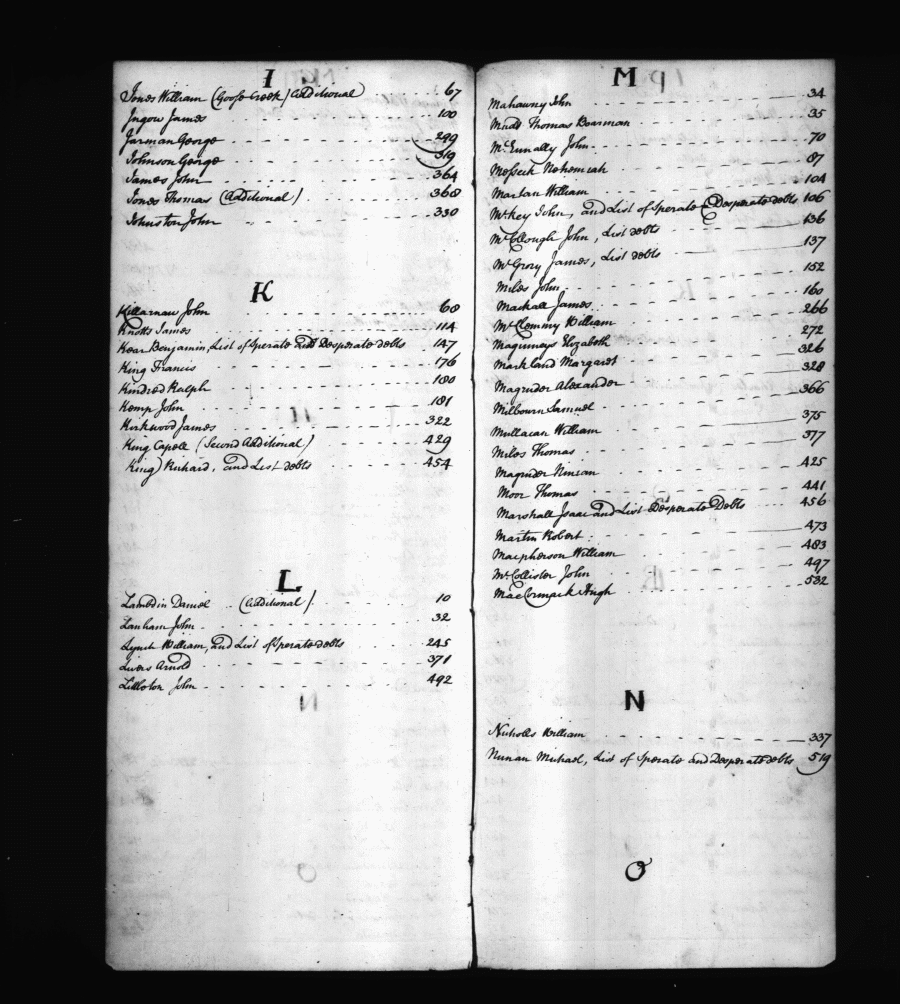 I
Jones William (Goose Creek) Additional 67
Ingow James 100
Jarman George 299
Johnson George 319
James John 364
Jones Thomas (Additional) 368
Johnston John 330
K
Killarnaw John 68
Knotts James 114
Kear Benjamin, List of Sperate and Desperate debts 147
King Francis 176
Kindred Ralph 180
Kemp John 181
Kirkwood James 322
King Capell (Second Additional) 429
King Richard, and List debts 454
L
Lambdin Daniel (Additional) 10
Lanham John 32
Lynch William, and List of Sperate debts 245
Livers Arnold 371
Lilloton John 492
M
Mahawny John 34
Mudd Thomas Boarman 35
McEnnally John 70
Messick Nehemiah 87
Martan William 104
McKey John, and List of Sperate & Desperate debts 106
McCllough John, List debts 136
McGrory James, List debts 137
Miles John 152
Mackall James 160
McClemmy William 266
Maginneys Elizabeth 272
Markland Margaret 326
Magruder Alexander 328
Milbourn Samuel 366
Mullacan William 375
Miles Thomas 377
Magruder Ninian 425
Moor Thomas 441
Marshall Isaac and List Desperate Debts 456
Martin Robert 473
Macpherson William 483
McCollister John 497
MacCormack Hugh 532
N
Nicholls William 337
Nunan Michael, List of Sperate and Desperate debts 519
O